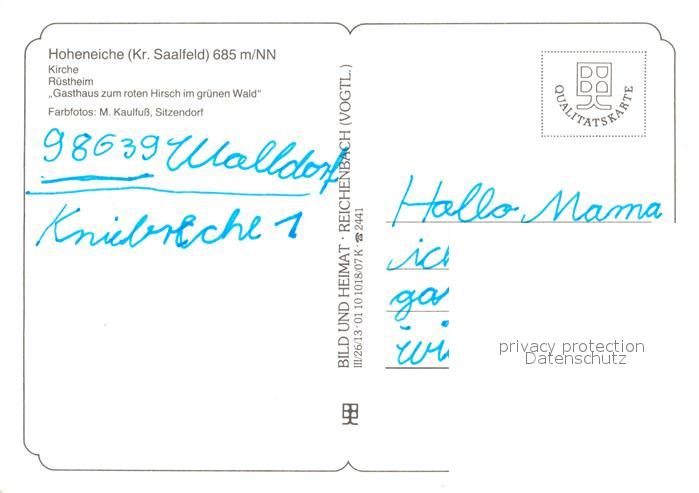 Hoheneiche (Kr. Saalfeld) 685 m/NN
Kirche
Rüstheim
„Gasthaus zum roten Hirsch im grünen Wald"
Farbfotos: M. Kaulfuß, Sitzendorf
98639 Walldorf
Kniebreche 1
BILD UND HEIMAT · REICHENBACH (VOGTL.)
III/26/13 · 01 10 1018/07 K · ☎ 2441
QUALITÄTSKARTE
Hallo Mama
ich
ga
wi
privacy protection
Datenschutz